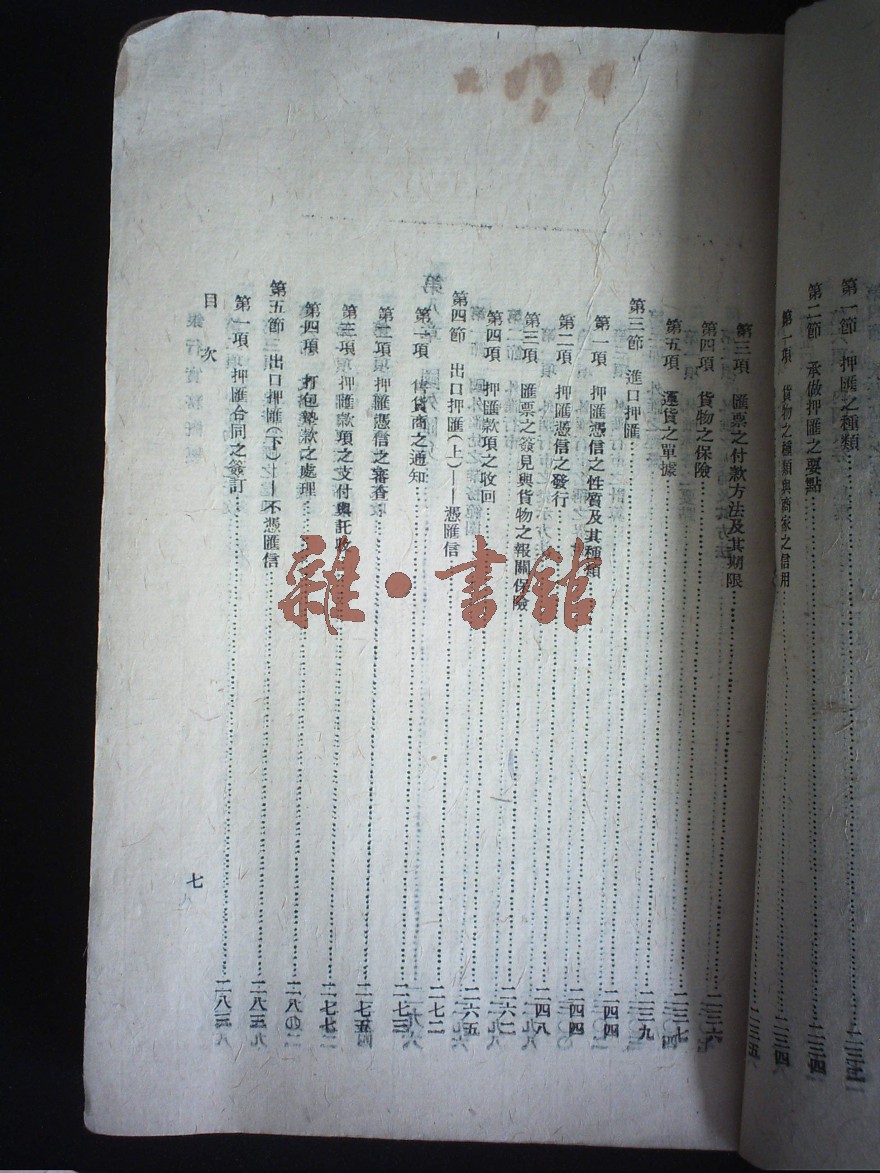 第一節 押匯之種類
第二節 承做押匯之要點
第一項 貨物之種類與商家之信用
第三項 匯票之付款方法及其期限
第四項 貨物之保險 二三六
第五項 運貨之單據 二三七
第三節 進口押匯 二三九
第一項 押匯憑信之性質及其種類 二四四
第二項 押匯憑信之發行 二四四
第三項 匯票之簽見與貨物之報關保險 二四八
第四項 押匯款項之收回 二六二
第四節 出口押匯(上)——憑匯信 二六五
第一項 售貨商之通知 二七二
第二項 押匯憑信之審查 二七五
第三項 押匯款項之支付與託收 二七七
第四項 打包墊款之處理 二八〇
第五節 出口押匯(下)——不憑匯信 二八三
第一項 押匯合同之簽訂 二八三
目次
七
雜·書館